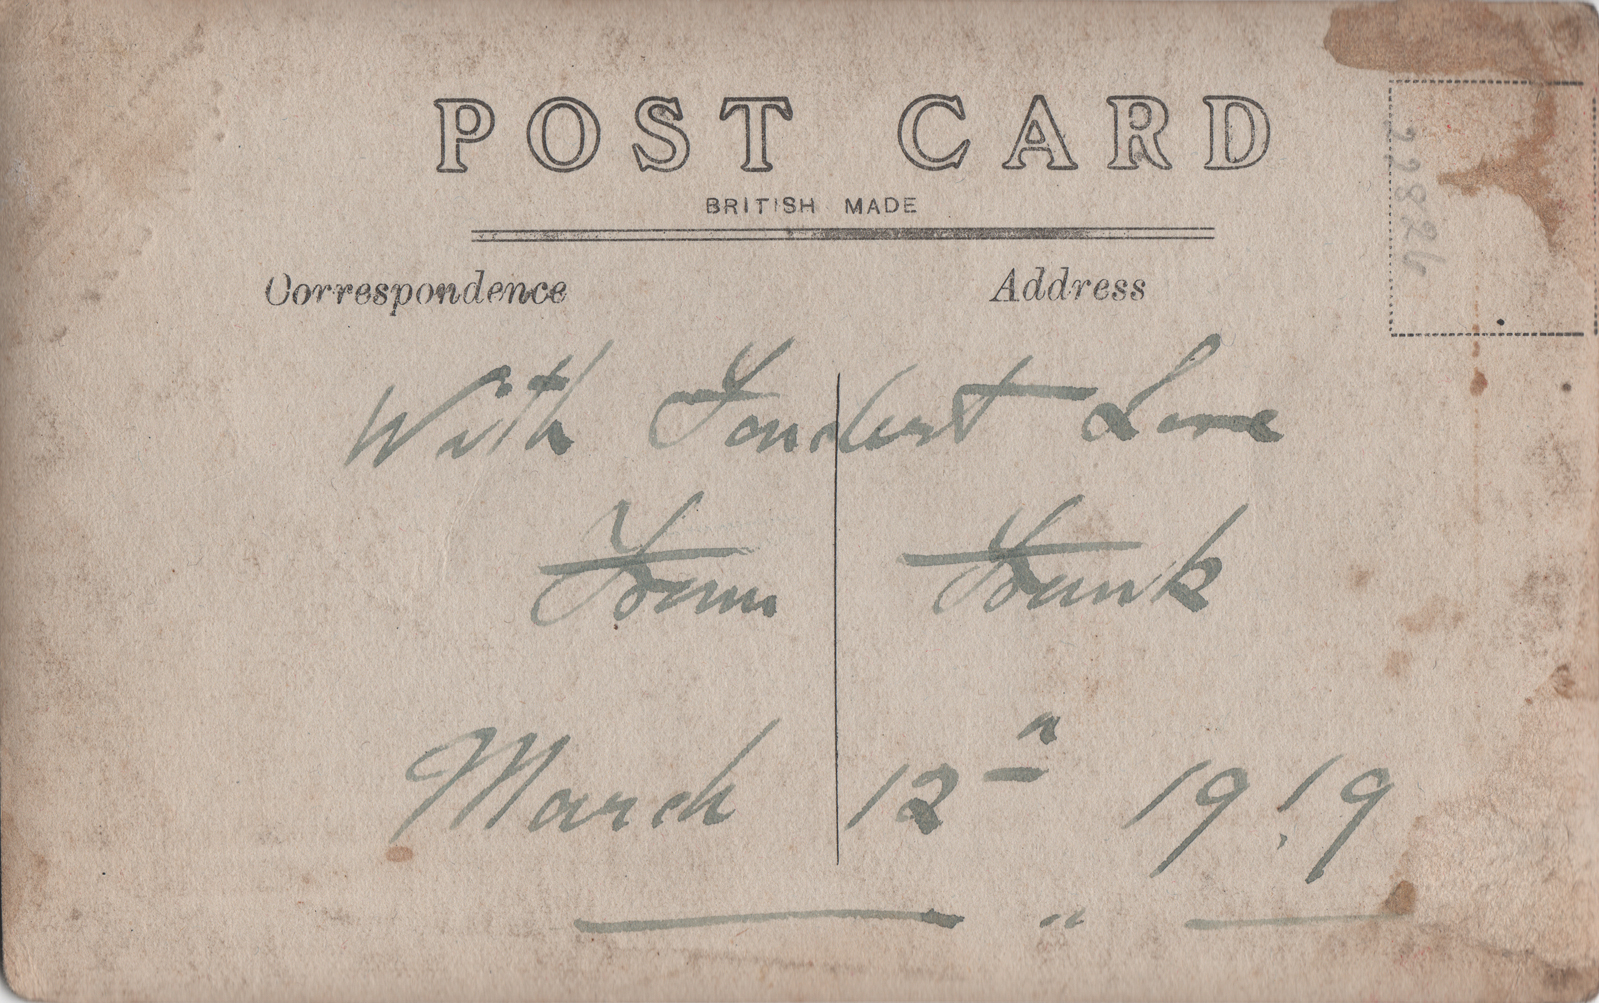 POST CARD
BRITISH MADE
Correspondence
Address
22826
With Fondest Love
From Frank
March 12" 1919
"